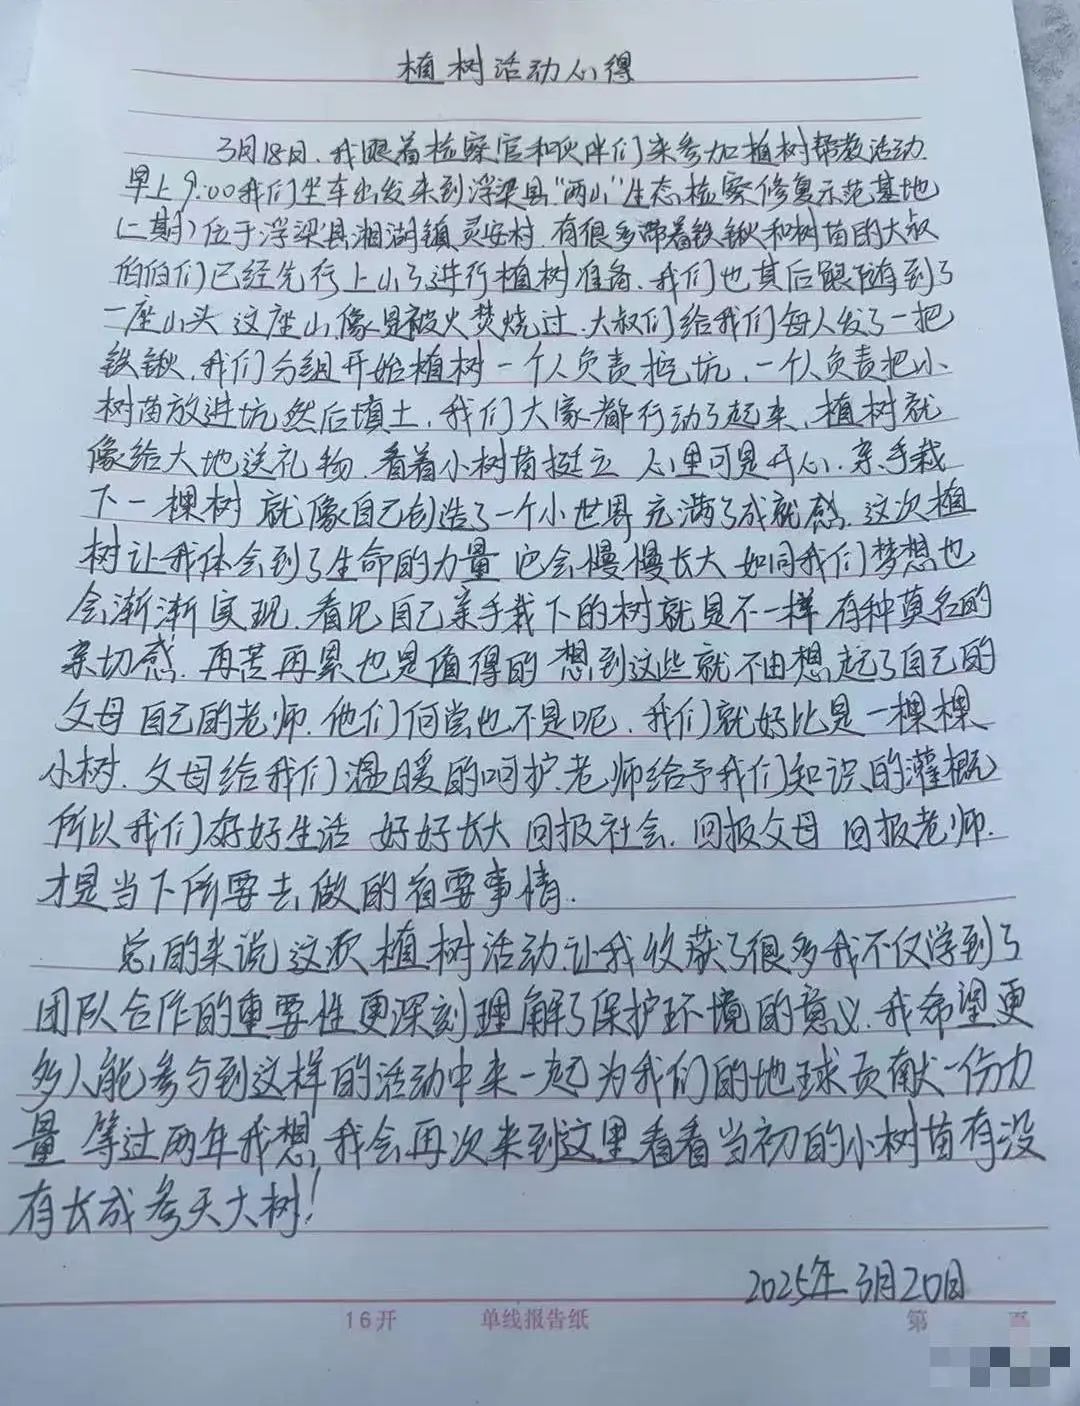 植树活动心得
3月18日.我跟着检察官和伙伴们来参加植树帮教活动.
早上9:00我们坐车出发来到浮梁县"两山"生态检察修复示范基地
(二期)位于浮梁县湘湖镇灵安村.有很多带着铁锹和树苗的大叔
伯伯们已经先行上山了进行植树准备.我们也其后跟随到了
一座山头 这座山像是被火焚烧过.大叔们给我们每人发了一把
铁锹.我们分组开始植树一个人负责挖坑.一个人负责把小
树苗放进坑然后填土.我们大家都行动了起来.植树就
像给大地送礼物.看着小树苗挺立 心里可是开心.亲手栽
下一棵树 就像自己创造了一个小世界 充满了成就感.这次植
树让我体会到了生命的力量 它会慢慢长大 如同我们梦想也
会渐渐实现.看见自己亲手栽下的树就是不一样 有种莫名的
亲切感.再苦再累也是值得的 想到这些就不由想起了自己的
父母 自己的老师.他们何尝也不是呢.我们就好比是一棵棵
小树.父母给我们温暖的呵护.老师给予我们知识的灌概
所以我们好好生活 好好长大 回报社会.回报父母 回报老师.
才是当下所要去做的首要事情.
总的来说这次植树活动.让我收获了很多我不仅学到了
团队合作的重要性更深刻理解了保护环境的意义.我希望更
多人能参与到这样的活动中来一起为我们的地球贡献一份力
量 等过两年我想,我会再次来到这里看看当初的小树苗有没
有长成参天大树!
2025年3月20日
16开 单线报告纸 第 页